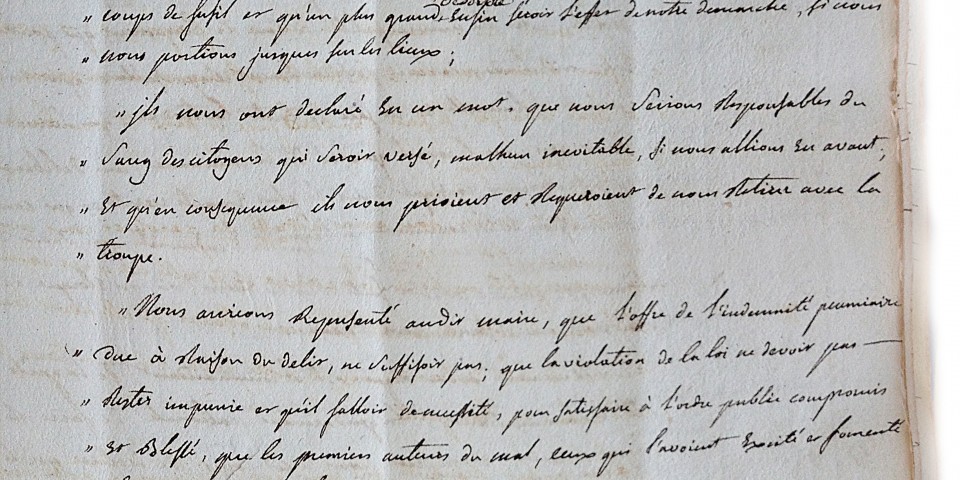 " coups de fusil et qu'un plus grand desordre Enfin seroit l'effet de notre demarche, si nous
" nous portions jusques sur les lieux;
" ils nous ont declaré En un mot. que nous serions Responsables du
" sang des citoyens qui seroit versé, malheur inevitable, si nous allions En avant;
" Et qu'en consequence ils nous prioient et Requeroient de nous Retirer avec la
" troupe.
" Nous aurions Representé audit maire, que l'offre de l'indemnité pecuniaire
" due à Raison du delit, ne suffisoit pas; que la violation de la loi ne devoit pas —
" Rester impunie et qu'il falloit de necessité, pour satisfaire à l'ordre public compromis
" Et Blessé, que les premiers auteurs du mal, ceux qui l'avoient Excité et fomenté